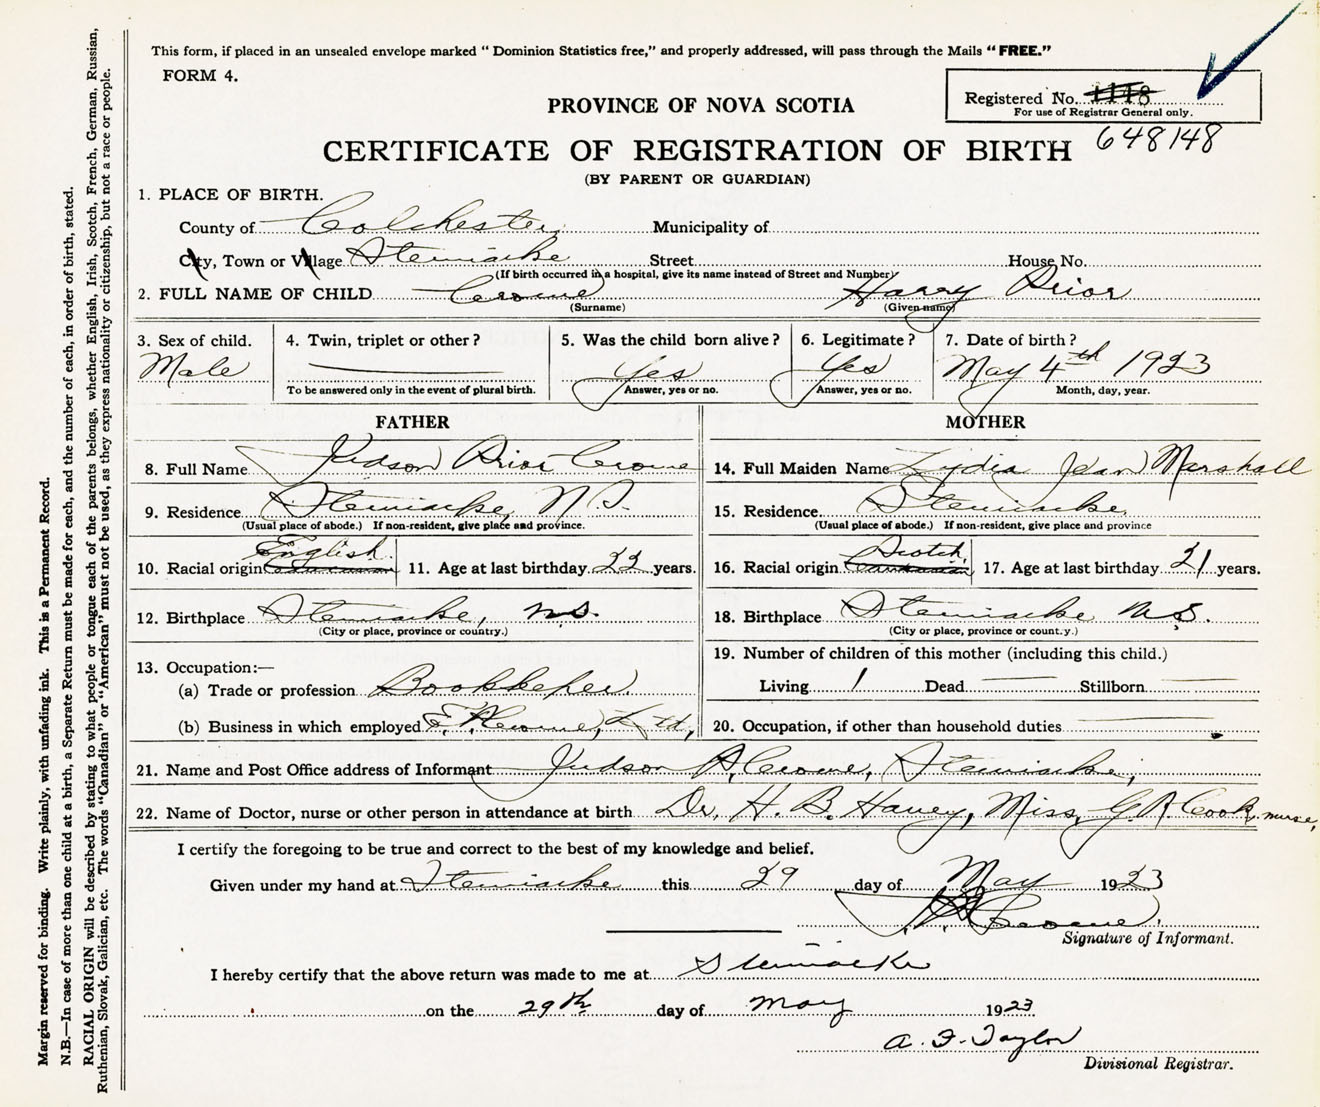 This form, if placed in an unsealed envelope marked "Dominion Statistics free," and properly addressed, will pass through the Mails "FREE."
FORM 4.
Registered No. 1148
For use of Registrar General only.
648148
PROVINCE OF NOVA SCOTIA
CERTIFICATE OF REGISTRATION OF BIRTH
(BY PARENT OR GUARDIAN)
1. PLACE OF BIRTH.
County of Colchester Municipality of
City, Town or Village Stewiacke Street House No.
(If birth occurred in a hospital, give its name instead of Street and Number)
2. FULL NAME OF CHILD Crowe Harry Prior
(Surname) (Given name)
3. Sex of child. 4. Twin, triplet or other? 5. Was the child born alive? 6. Legitimate? 7. Date of birth?
Male Yes Yes May 4th 1923
To be answered only in the event of plural birth. Answer, yes or no. Answer, yes or no. Month, day, year.
FATHER MOTHER
8. Full Name Judson Prior Crowe 14. Full Maiden Name Lydia Jean Marshall
9. Residence Stewiacke, N.S. 15. Residence Stewiacke
(Usual place of abode.) If non-resident, give place and province. (Usual place of abode.) If non-resident, give place and province
English Scotch
10. Racial origin Canadian 11. Age at last birthday 22 years. 16. Racial origin Canadian 17. Age at last birthday 21 years.
12. Birthplace Stewiacke, N.S. 18. Birthplace Stewiacke N.S.
(City or place, province or country.) (City or place, province or count.y.)
13. Occupation:— 19. Number of children of this mother (including this child.)
(a) Trade or profession Bookkeeper. Living 1 Dead Stillborn
(b) Business in which employed Crowe, Ltd, 20. Occupation, if other than household duties
21. Name and Post Office address of Informant Judson P. Crowe, Stewiacke,
22. Name of Doctor, nurse or other person in attendance at birth Dr. H. B. Havey, Miss G. R. Cook, nurse,
I certify the foregoing to be true and correct to the best of my knowledge and belief.
Given under my hand at Stewiacke this 29 day of May 1923
J. P. Crowe
Signature of Informant.
I hereby certify that the above return was made to me at Stewiacke
on the 29th day of May 1923
A. F. Taylor
Divisional Registrar.
Margin reserved for binding. Write plainly, with unfading ink. This is a Permanent Record.
N.B.—In case of more than one child at a birth, a Separate Return must be made for each, and the number of each, in order of birth, stated.
RACIAL ORIGIN will be described by stating to what people or tongue each of the parents belongs, whether English, Irish, Scotch, French, German, Russian,
Ruthenian, Slovak, Galician, etc. The words "Canadian" or "American" must not be used, as they express nationality or citizenship, but not a race or people.